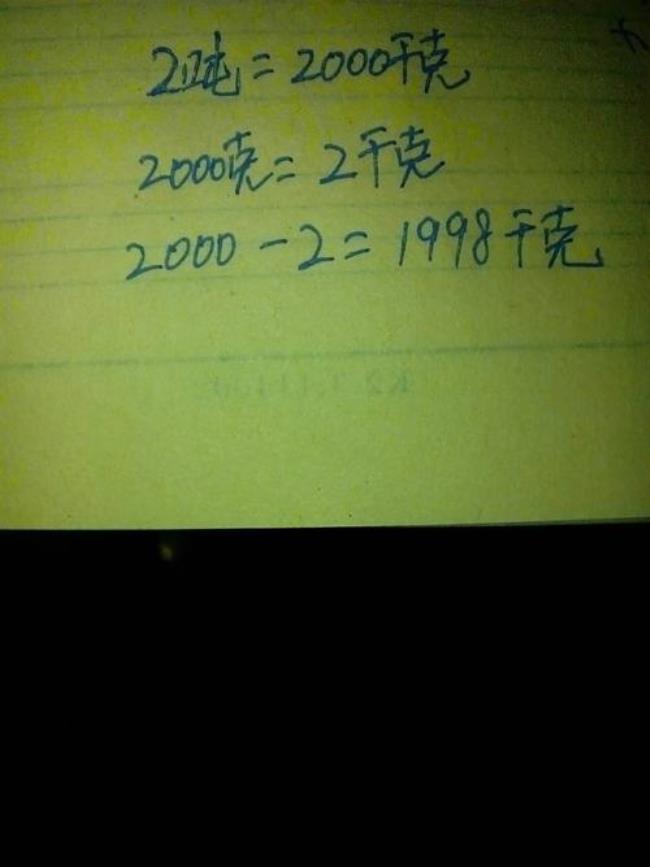 2吨=2000千克
2000克=2千克
2000-2=1998千克